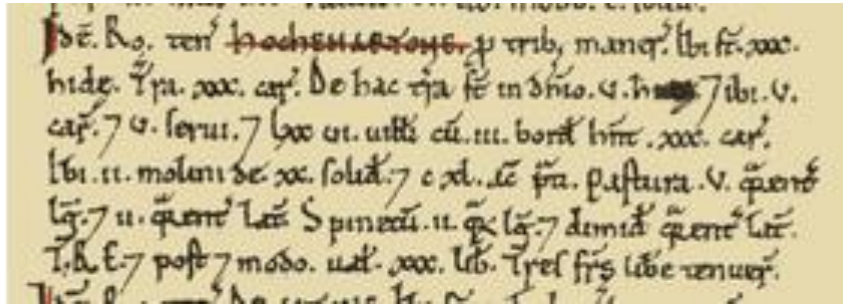 modo. c. solid.
Idē. Ro. ten̛ HOCHENARTONE. ꝑ trib; maner̛. Ibi st̄. xxx.
hidę. Tr̄a. xxx. car̛. De hac tr̄a st̄ in dn̄io. v. 7 ibi. v.
car̛. 7 v. serui. 7 lxx vi. uill̄i cū. iii. bord̄ hn̄t. xxx. car̛.
Ibi. ii. molini de. xx. solid̄. 7 c xl. ac̄ p̄ti. Pastura. v. qr̄ent̛
lḡ. 7 ii. qr̄ent̛ lat̄. Spinetū. ii. qr̄ lḡ. 7 dimid̄ qr̄ent̛ lat̄.
T.R.E. 7 post 7 modo. ual̄. xxx. lib̄. Tres fr̄s libe tenuer̛.
Idē. Ro. ten̛